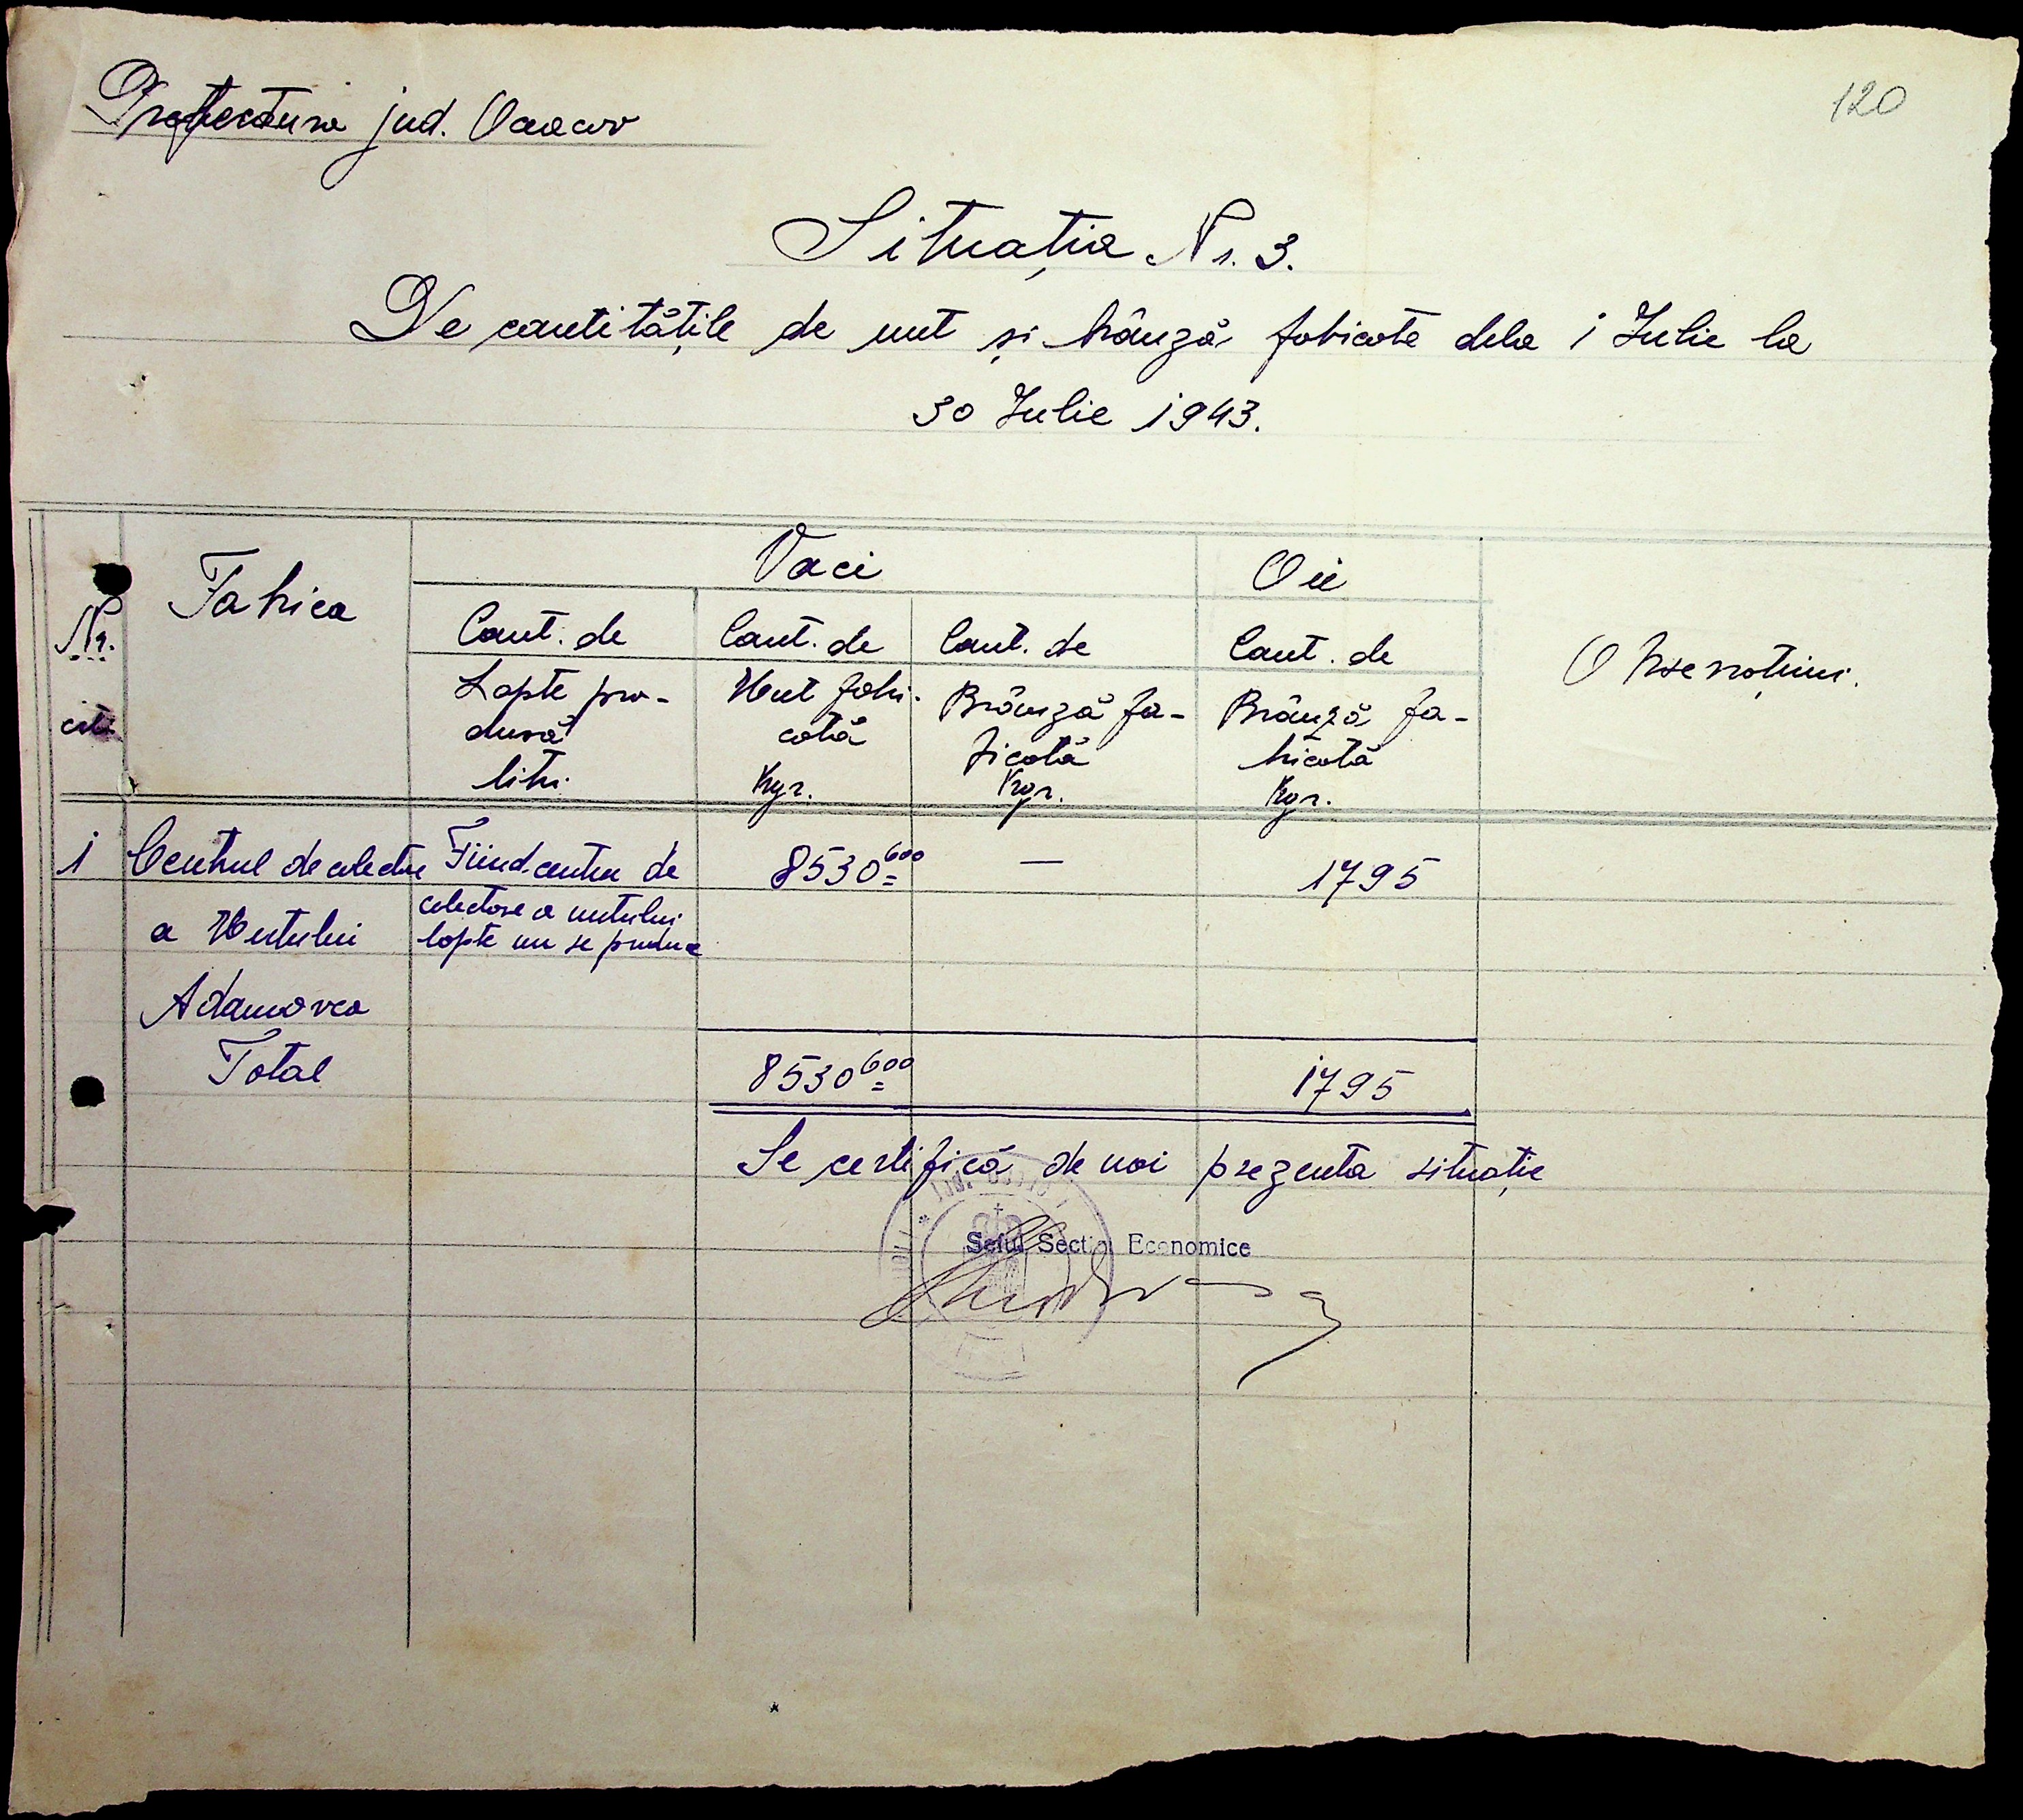 120
Prefectura jud. Oceacov
Situația Nr. 3.
De cantitățile de unt și brânză fabricate dela 1 Iulie la
30 Iulie 1943.
Nr.
crt.
Fabrica
Vaci
Oii
Observațiuni.
Cant. de
Lapte pro-
dusă
litri
Cant. de
Unt fabri-
cată
Kgr.
Cant. de
Brânză fa-
bricată
Kgr.
Cant. de
Brânză fa-
bricată
Kgr.
1 Centrul de colectare Fiind centru de 8530 600 — 1795
colectare a untului
a Untului lapte nu se produce
Adamovca
Total 8530 600 1795
Se certifică de noi prezenta situație
Șeful Secției Economice